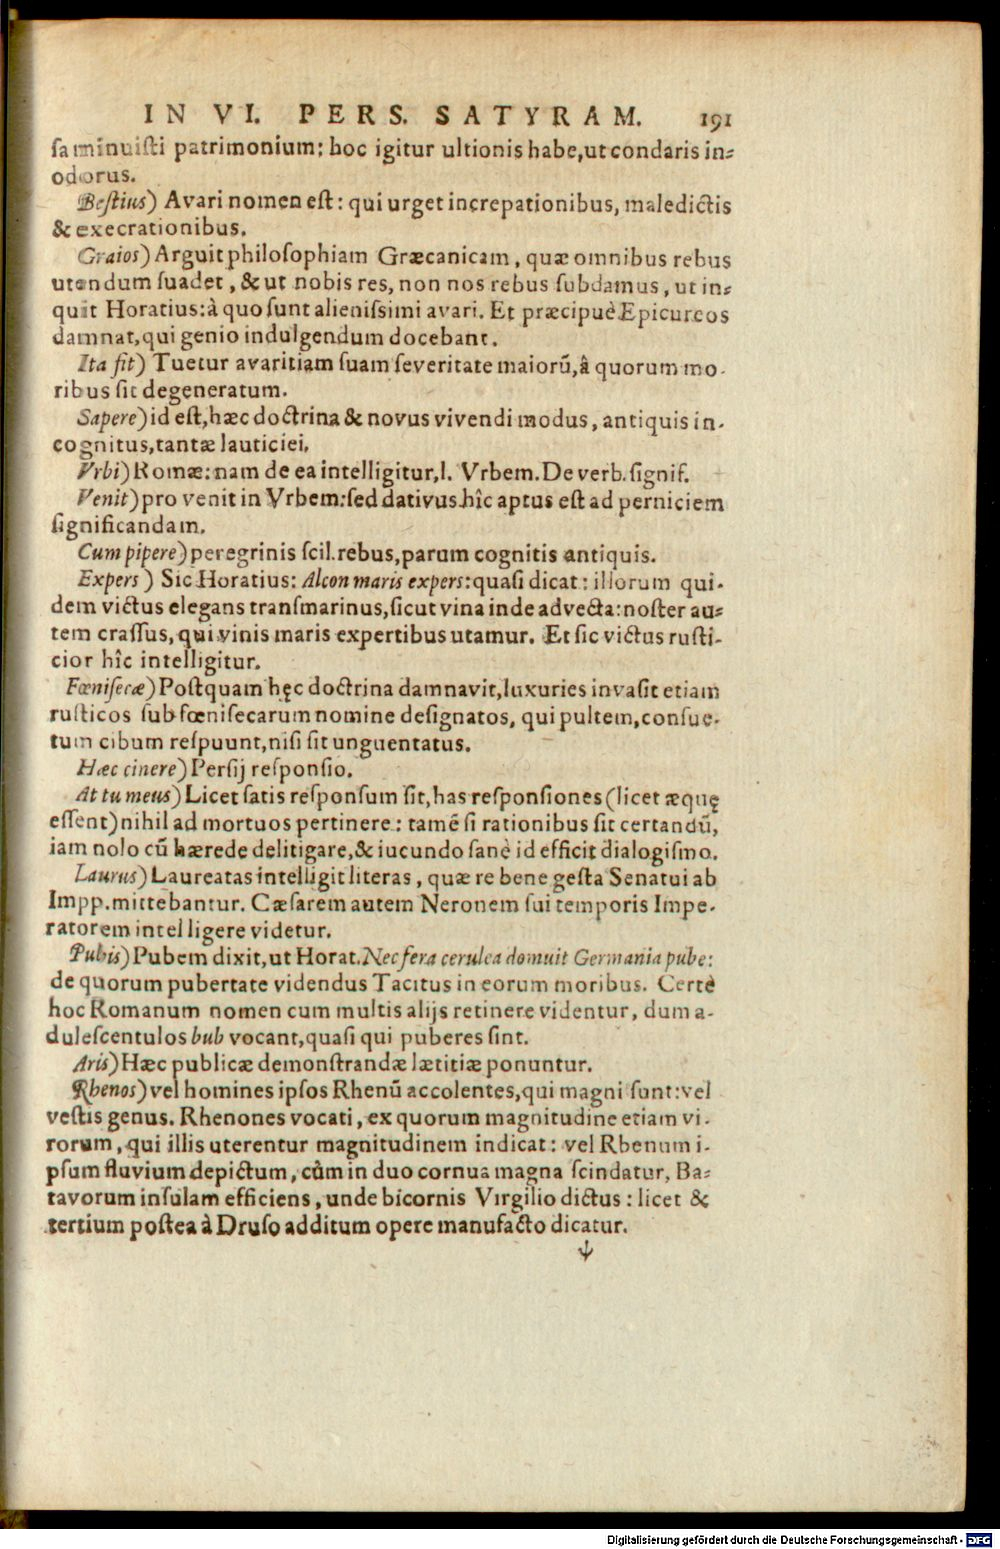 IN VI. PERS. SATYRAM. 191
ſa minuiſti patrimonium: hoc igitur ultionis habe, ut condaris in⸗
odorus.
Beſtius) Avari nomen eſt: qui urget increpationibus, maledictis
& execrationibus.
Graios) Arguit philoſophiam Græcanicam, quæ omnibus rebus
utendum ſuadet, & ut nobis res, non nos rebus ſubdamus, ut in⸗
quit Horatius: à quo ſunt alieniſſimi avari. Et præcipuè Epicureos
damnat, qui genio indulgendum docebant.
Ita fit) Tuetur avaritiam ſuam ſeveritate maiorũ, â quorum mo-
ribus ſit degeneratum.
Sapere) id eſt, hæc doctrina & novus vivendi modus, antiquis in-
cognitus, tantæ lauticiei.
Vrbi) Romæ: nam de ea intelligitur, l. Vrbem. De verb. ſignif.
Venit) pro venit in Vrbem: ſed dativus hîc aptus eſt ad perniciem
ſignificandam.
Cum pipere) peregrinis ſcil. rebus, parum cognitis antiquis.
Expers) Sic Horatius: Alcon maris expers: quaſi dicat: illorum qui-
dem victus elegans tranſmarinus, ſicut vina inde advecta: noſter au⸗
tem craſſus, qui vinis maris expertibus utamur. Et ſic victus ruſti-
cior hîc intelligitur.
Fœniſecæ) Poſtquam hęc doctrina damnavit, luxuries invaſit etiam
ruſticos ſub fœniſecarum nomine deſignatos, qui pultem, conſue-
tum cibum reſpuunt, niſi ſit unguentatus.
Hæc cinere) Perſij reſponſio.
At tu meus) Licet ſatis reſponſum ſit, has reſponſiones (licet æquę
eſſent) nihil ad mortuos pertinere: tamẽ ſi rationibus ſit certandũ,
iam nolo cũ hærede delitigare, & iucundo ſanè id efficit dialogiſmo.
Laurus) Laureatas intelligit literas, quæ re bene geſta Senatui ab
Impp. mittebantur. Cæſarem autem Neronem ſui temporis Impe-
ratorem intelligere videtur.
Pubis) Pubem dixit, ut Horat. Nec fera cerulea domuit Germania pube:
de quorum pubertate videndus Tacitus in eorum moribus. Certè
hoc Romanum nomen cum multis alijs retinere videntur, dum a-
duleſcentulos bub vocant, quaſi qui puberes ſint.
Aris) Hæc publicæ demonſtrandæ lætitiæ ponuntur.
Rhenos) vel homines ipſos Rhenũ accolentes, qui magni ſunt: vel
veſtis genus. Rhenones vocati, ex quorum magnitudine etiam vi-
rorum, qui illis uterentur magnitudinem indicat: vel Rhenum i-
pſum fluvium depictum, cûm in duo cornua magna ſcindatur, Ba⸗
tavorum inſulam efficiens, unde bicornis Virgilio dictus: licet &
tertium poſtea à Druſo additum opere manufacto dicatur.
Digitalisierung gefördert durch die Deutsche Forschungsgemeinschaft - DFG